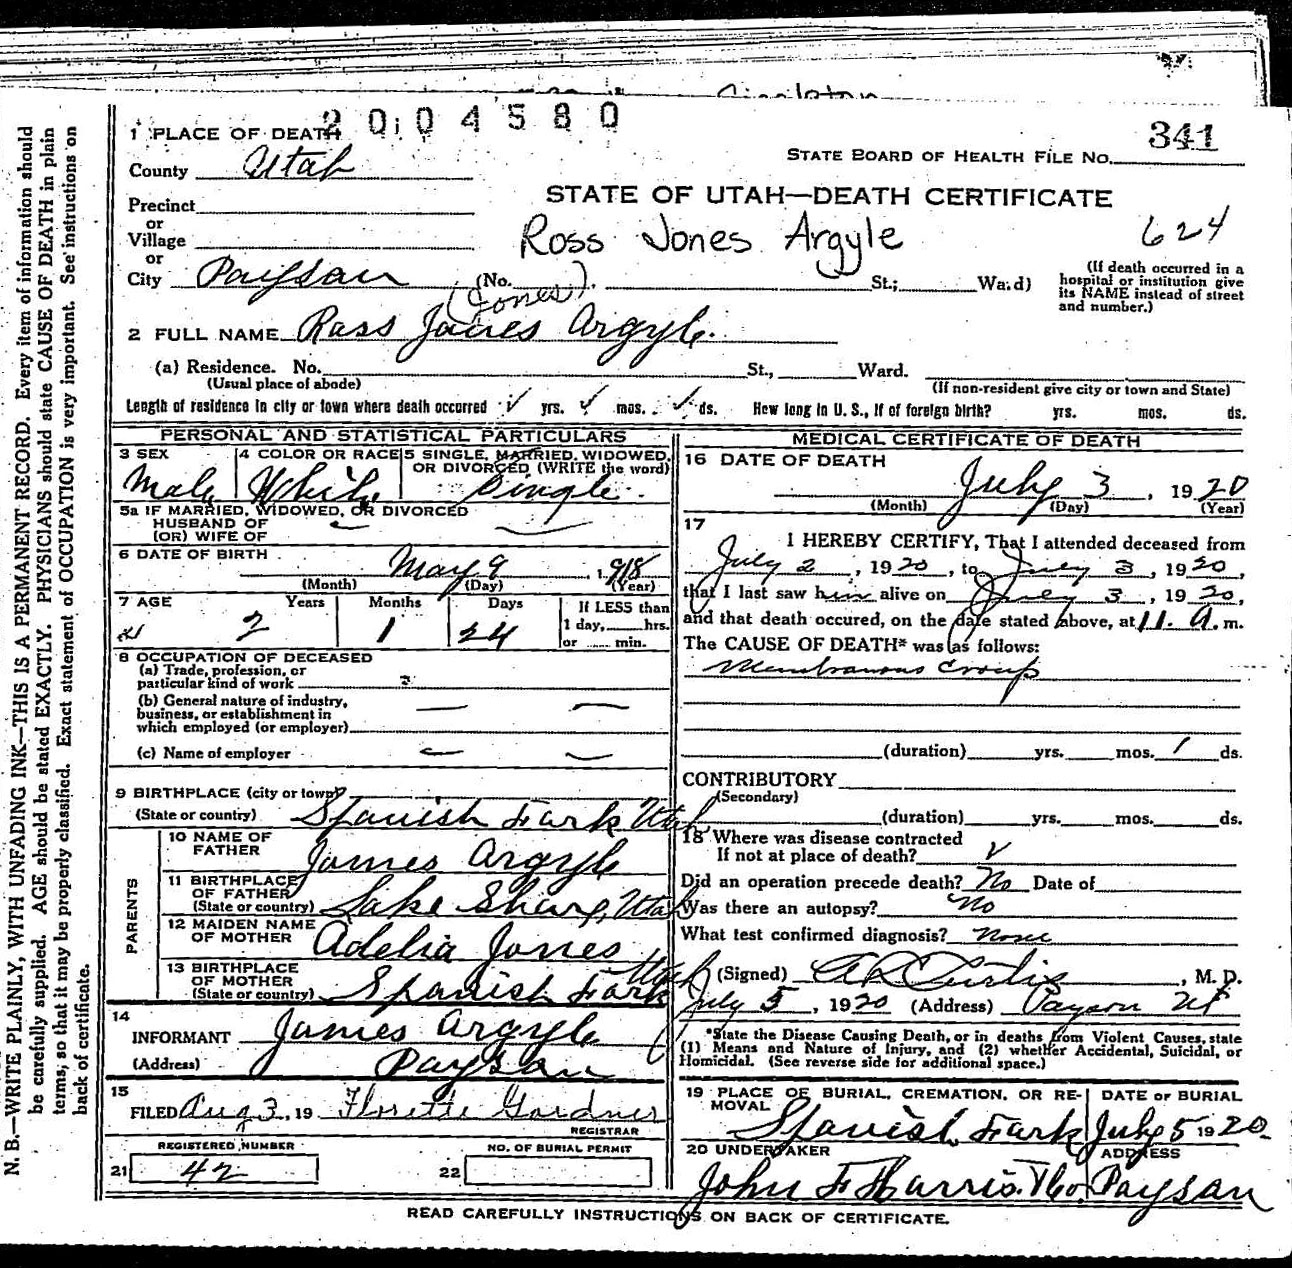 2004580
341
1 PLACE OF DEATH
STATE BOARD OF HEALTH FILE No.
County Utah
STATE OF UTAH—DEATH CERTIFICATE
Precinct
or
Village
Ross Jones Argyle
624
or
City Payson (No. St.; Ward)
(If death occurred in a hospital or institution give its NAME instead of street and number.)
(Jones)
2 FULL NAME Ross James Argyle.
(a) Residence. No. St., Ward.
(Usual place of abode)
(If non-resident give city or town and State)
Length of residence in city or town where death occurred yrs. mos. ds. How long in U. S., if of foreign birth? yrs. mos. ds.
PERSONAL AND STATISTICAL PARTICULARS
3 SEX Male
4 COLOR OR RACE White
5 SINGLE, MARRIED, WIDOWED, OR DIVORCED (WRITE the word) Single
5a IF MARRIED, WIDOWED, OR DIVORCED
HUSBAND OF
(OR) WIFE OF
6 DATE OF BIRTH May 9, 1918
(Month) (Day) (Year)
7 AGE Years Months Days
If LESS than
1 day, hrs.
or min.
2 1 24
8 OCCUPATION OF DECEASED
(a) Trade, profession, or
particular kind of work
(b) General nature of industry,
business, or establishment in
which employed (or employer)
(c) Name of employer
9 BIRTHPLACE (city or town)
(State or country) Spanish Fork Utah
PARENTS
10 NAME OF FATHER James Argyle
11 BIRTHPLACE OF FATHER
(State or country) Lake Shore, Utah
12 MAIDEN NAME OF MOTHER Adelia Jones
13 BIRTHPLACE OF MOTHER
(State or country) Spanish Fork Utah
14
INFORMANT James Argyle
(Address) Payson
15
FILED Aug 3, 19 Florette Gardner
REGISTRAR
REGISTERED NUMBER
21 42
NO. OF BURIAL PERMIT
22
MEDICAL CERTIFICATE OF DEATH
16 DATE OF DEATH
July 3, 1920
(Month) (Day) (Year)
17
I HEREBY CERTIFY, That I attended deceased from
July 2, 1920, to July 3, 1920,
that I last saw him alive on July 3, 1920,
and that death occured, on the date stated above, at 11. A. m.
The CAUSE OF DEATH* was as follows:
Membranous Croup
(duration) yrs. mos. 1 ds.
CONTRIBUTORY
(Secondary)
(duration) yrs. mos. ds.
18 Where was disease contracted
If not at place of death?
Did an operation precede death? No Date of
Was there an autopsy? No
What test confirmed diagnosis? None
(Signed) Curtis, M. D.
July 5, 1920 (Address) Payson Ut
*State the Disease Causing Death, or in deaths from Violent Causes, state
(1) Means and Nature of Injury, and (2) whether Accidental, Suicidal, or
Homicidal. (See reverse side for additional space.)
19 PLACE OF BURIAL, CREMATION, OR REMOVAL
Spanish Fork
DATE OF BURIAL
July 5 1920
20 UNDERTAKER
John F Harris.
ADDRESS
Payson
READ CAREFULLY INSTRUCTIONS ON BACK OF CERTIFICATE.
N. B.—WRITE PLAINLY, WITH UNFADING INK—THIS IS A PERMANENT RECORD. Every item of information should
be carefully supplied. AGE should be stated EXACTLY. PHYSICIANS should state CAUSE OF DEATH in plain
terms, so that it may be properly classified. Exact statement of OCCUPATION is very important. See instructions on
back of certificate.